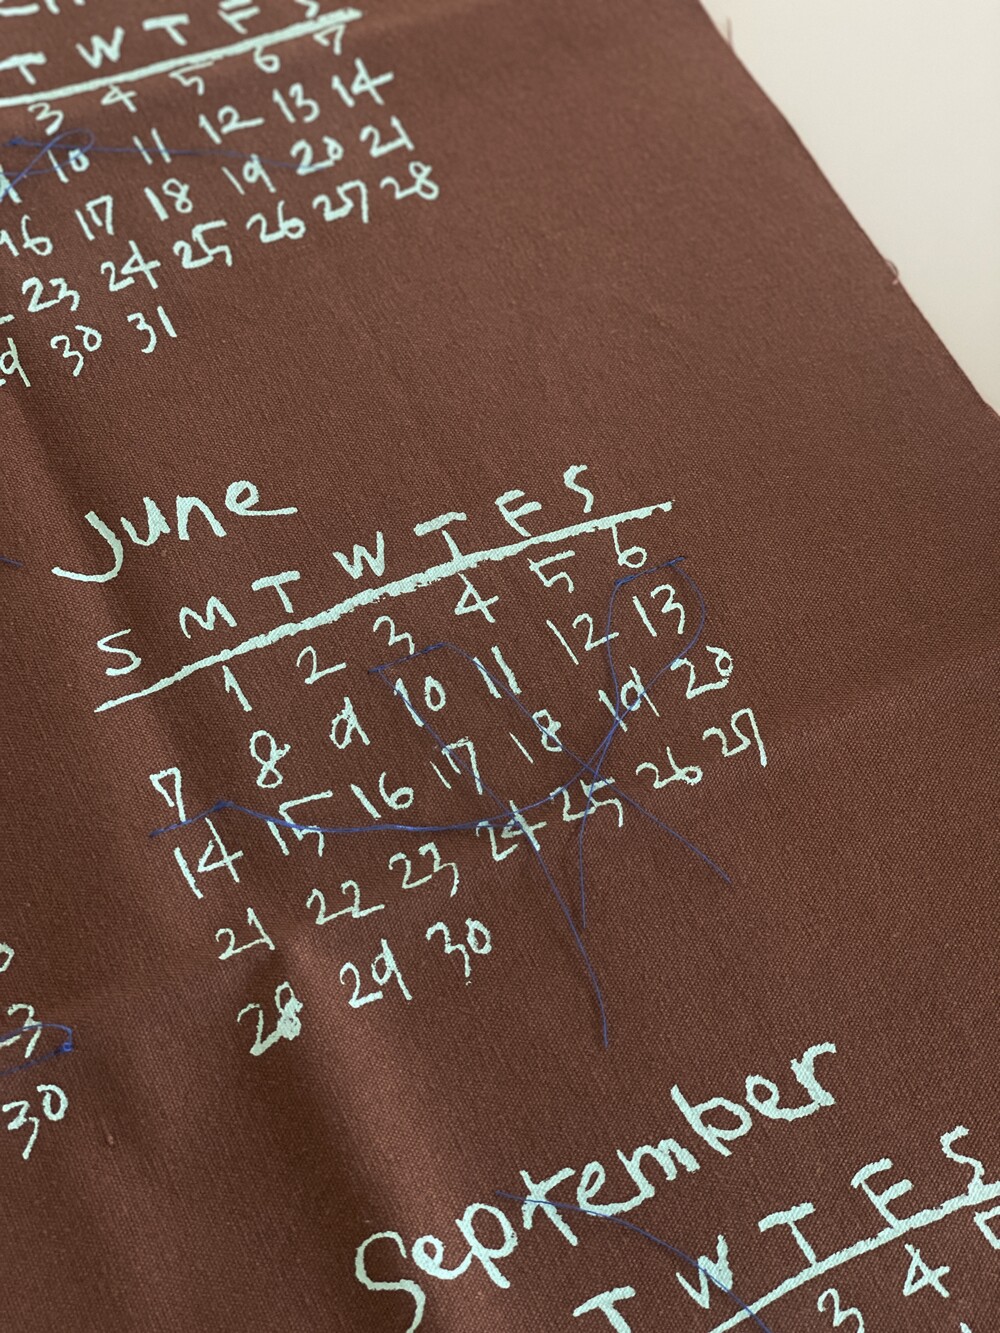 T W T F S
3 4 5 6 7
10 11 12 13 14
16 17 18 19 20 21
23 24 25 26 27 28
29 30 31
June
S M T W T F S
1 2 3 4 5 6
7 8 9 10 11 12 13
14 15 16 17 18 19 20
21 22 23 24 25 26 27
28 29 30
30
September
T W T F S
3 4 5